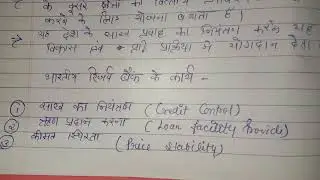 के दूसरे
करने के लिए योजना बनाता है।
यह देश के साख प्रवाह का नियंत्रण करके यह
विकास एवं प्रक्रिया में योगदान देता
भारतीय रिजर्व बैंक के कार्य -
① साख का नियंत्रण (Credit Control)
② ऋण प्रदान करना (Loan Facility Provide)
③ कीमत स्थिरता (Price Stability)